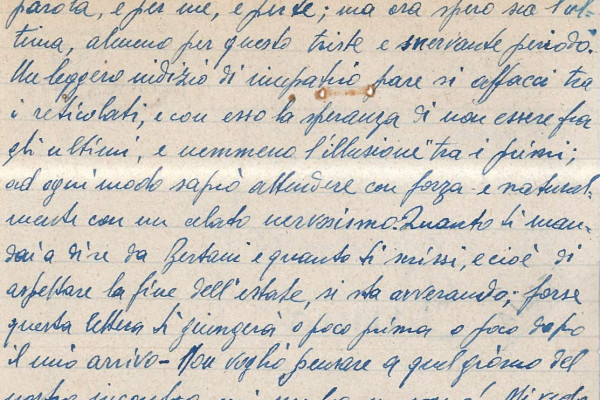 parola, e per me, e per te; ma ora spero sia l'ul-
tima, almeno per questo triste e snervante periodo.
Un leggero indizio di rimpatrio, pare si affacci tra
i reticolati, e con esso la speranza di non essere fra
gli ultimi, e nemmeno l'illusione "tra i primi;
ad ogni modo saprò attendere con forza e natural-
mente con un elato nervosismo. Quanto ti man-
dai a dire da Bertani e quanto ti scrissi, e cioè di
aspettare la fine dell'estate, si sta avverando; forse
questa lettera ti giungerà o poco prima o poco dopo
il mio arrivo - Non voglio pensare a quel giorno del
nostro incontro, mi Mi vedo